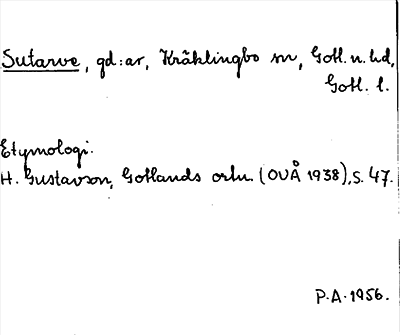 Sutarve, gd:ar, Kräklingbo sn, Gotl. n. hd,
Gotl. l.
Etymologi.
H. Gustavson, Gotlands ortn. (OUÅ 1938), s. 47.
P.A. 1956.